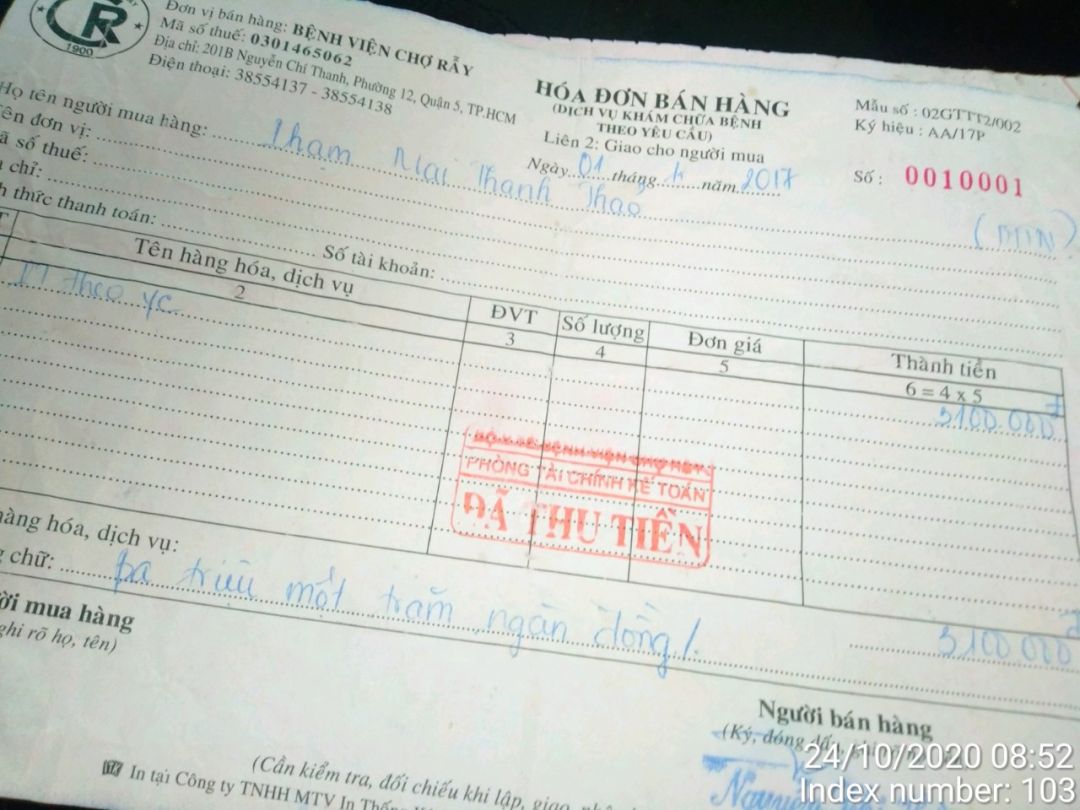 1900
Đơn vị bán hàng: BỆNH VIỆN CHỢ RẪY
Mã số thuế: 0301465062
Địa chỉ: 201B Nguyễn Chí Thanh, Phường 12, Quận 5, TP.HCM
Điện thoại: 38554137 - 38554138
HÓA ĐƠN BÁN HÀNG
(DỊCH VỤ KHÁM CHỮA BỆNH
THEO YÊU CẦU)
Liên 2: Giao cho người mua
Ngày 01 tháng 4 năm 2017
Mẫu số : 02GTTT2/002
Ký hiệu : AA/17P
Số : 0010001
Họ tên người mua hàng: Phạm Mai Thanh Thảo
Tên đơn vị:
số thuế:
chỉ:
thức thanh toán: Số tài khoản:
(MIN)
Tên hàng hóa, dịch vụ ĐVT Số lượng Đơn giá Thành tiền
2 3 4 5 6 = 4 x 5
theo yc 3100.000đ
PHÒNG TÀI CHÍNH KẾ TOÁN
ĐÃ THU TIỀN
hàng hóa, dịch vụ: 3100.000đ
chữ: ba triệu một trăm ngàn đồng/.
mua hàng
ghi rõ họ, tên)
Người bán hàng
(Ký, đóng
(Cần kiểm tra, đối chiếu khi lập, giao
In tại Công ty TNHH MTV In
24/10/2020 08:52
Index number: 103